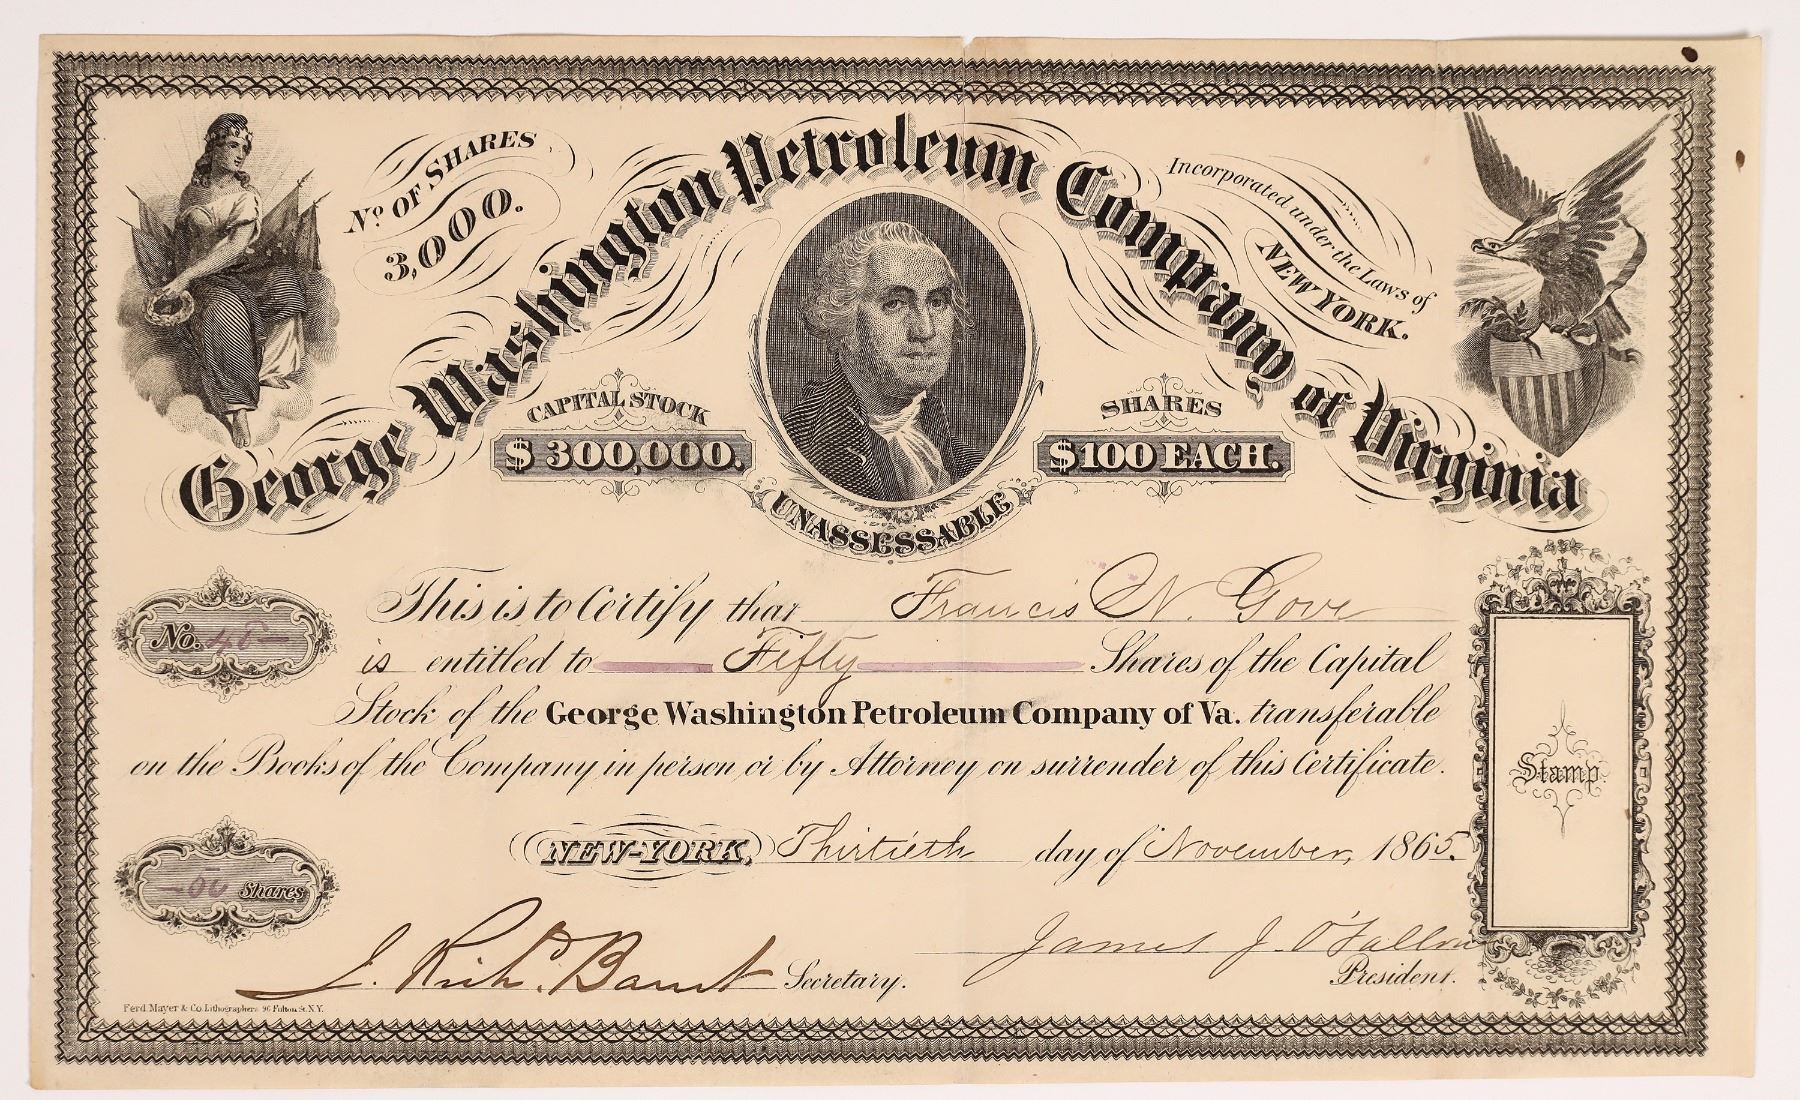 Nº OF SHARES
3,000.
George Washington Petroleum Company of Virginia
Incorporated under the Laws of
NEW YORK.
CAPITAL STOCK
$ 300,000.
SHARES
$100 EACH.
UNASSESSABLE
This is to Certify that Francis N. Gove
No. 48
is entitled to Fifty Shares of the Capital
Stock of the George Washington Petroleum Company of Va. transferable
on the Books of the Company in person or by Attorney on surrender of this Certificate.
Stamp.
NEW-YORK, Thirtieth day of November, 1865.
50 Shares
J. Richd. Secretary.
James J. O'Fallon
President.
Ferd. Mayer & Co. Lithographers 96 Fulton St. N.Y.